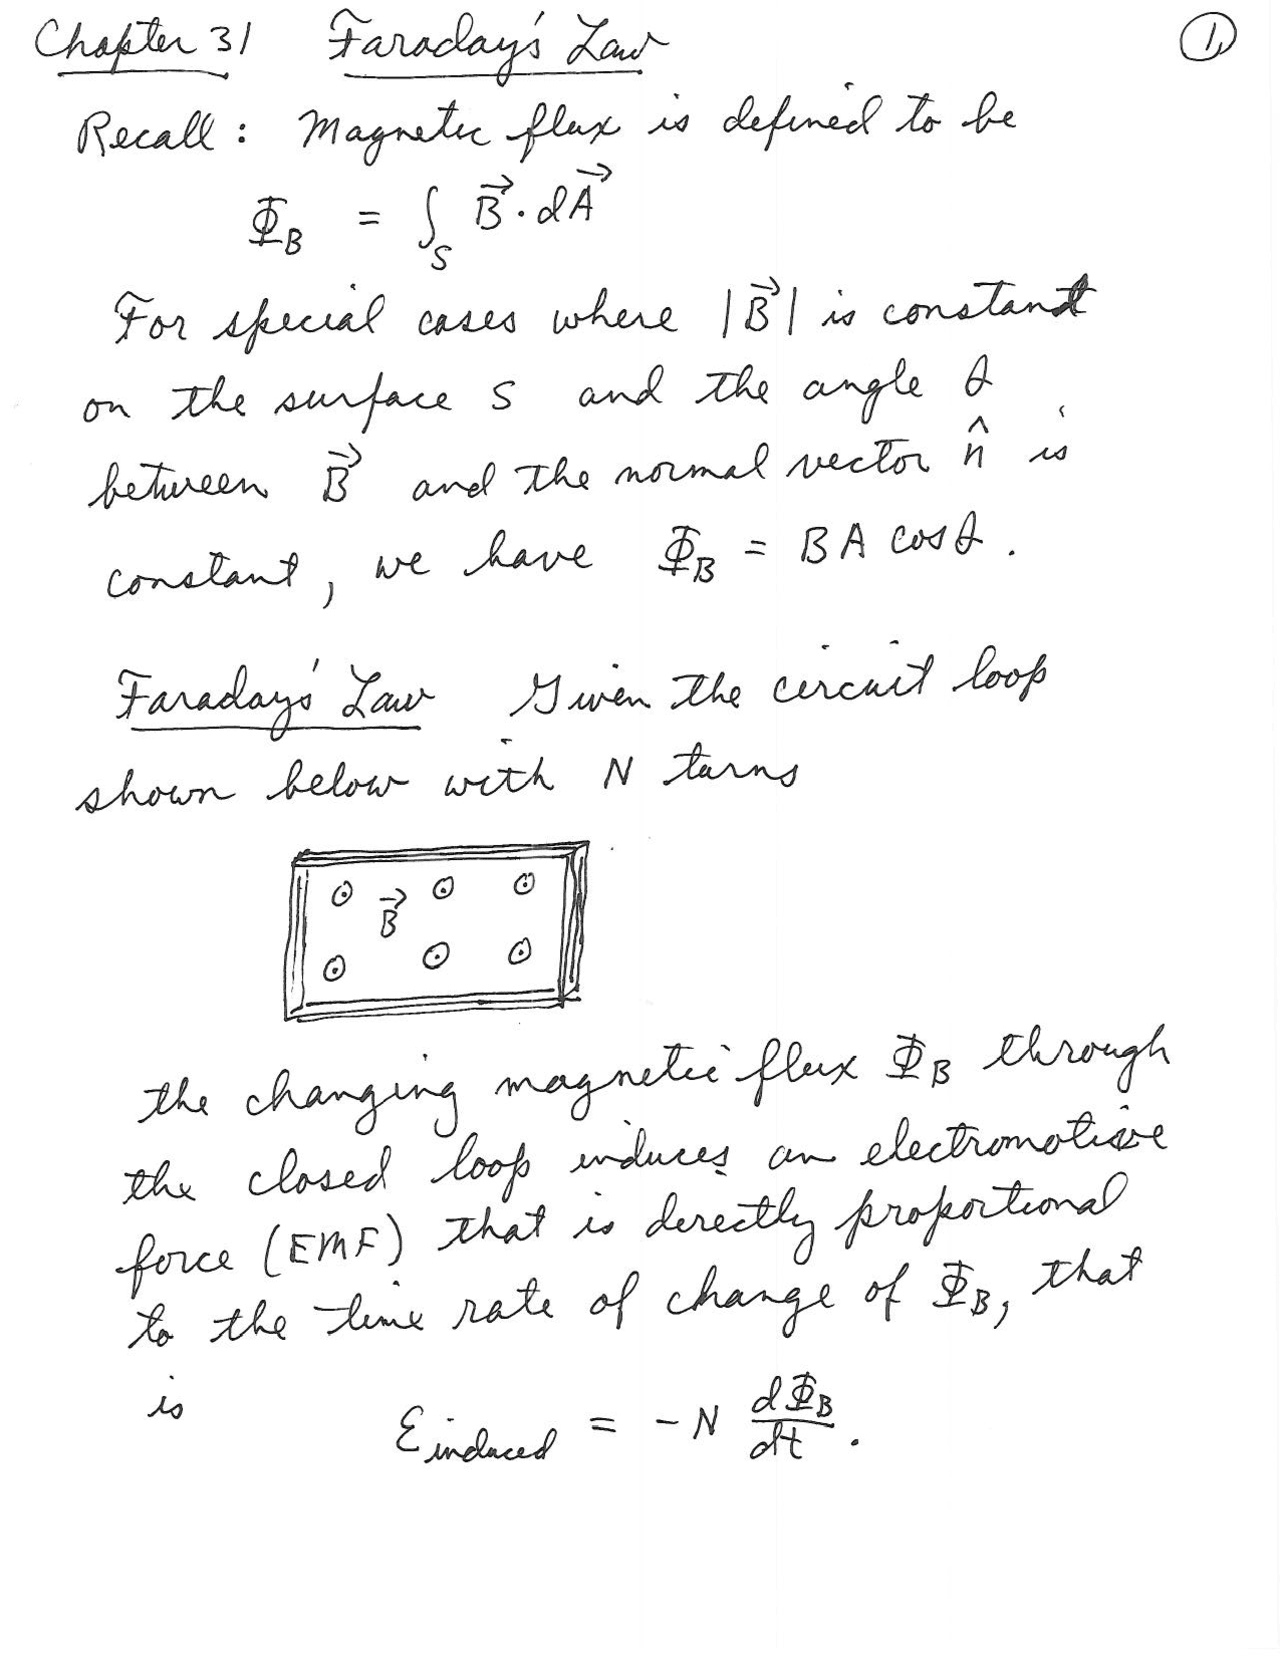 Chapter 31 Faraday's Law 1
Recall: Magnetic flux is defined to be
Φ_B = ∫_S B⃗ · dA⃗
For special cases where |B⃗| is constant
on the surface S and the angle θ
between B⃗ and the normal vector n̂ is
constant, we have Φ_B = BA cos θ.
Faraday's Law Given the circuit loop
shown below with N turns
B⃗
the changing magnetic flux Φ_B through
the closed loop induces an electromotive
force (EMF) that is directly proportional
to the time rate of change of Φ_B, that
is
ℰ_induced = -N dΦ_B/dt.